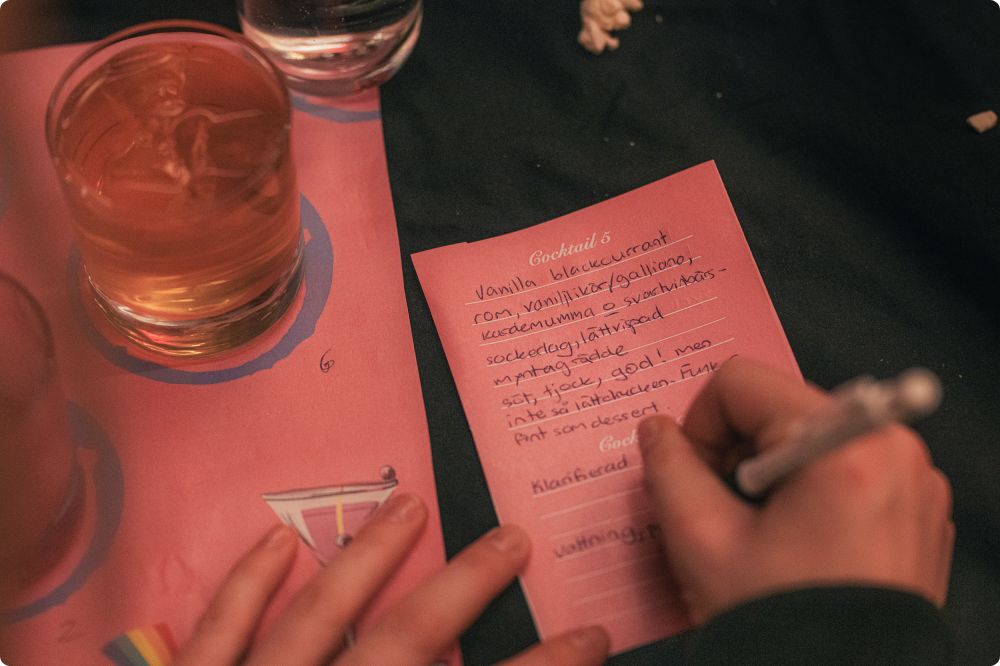 Cocktail 5
Vanilla blackcurrant
rom, vaniljlikör/galliano,
kardemumma o svartvinbärs-
sockerlag, lättvispad
myntagrädde
söt, tjock, god! men
inte så lättdrucken. Funk
fint som dessert.
Cock
Klarifierad
vattning,
6
2